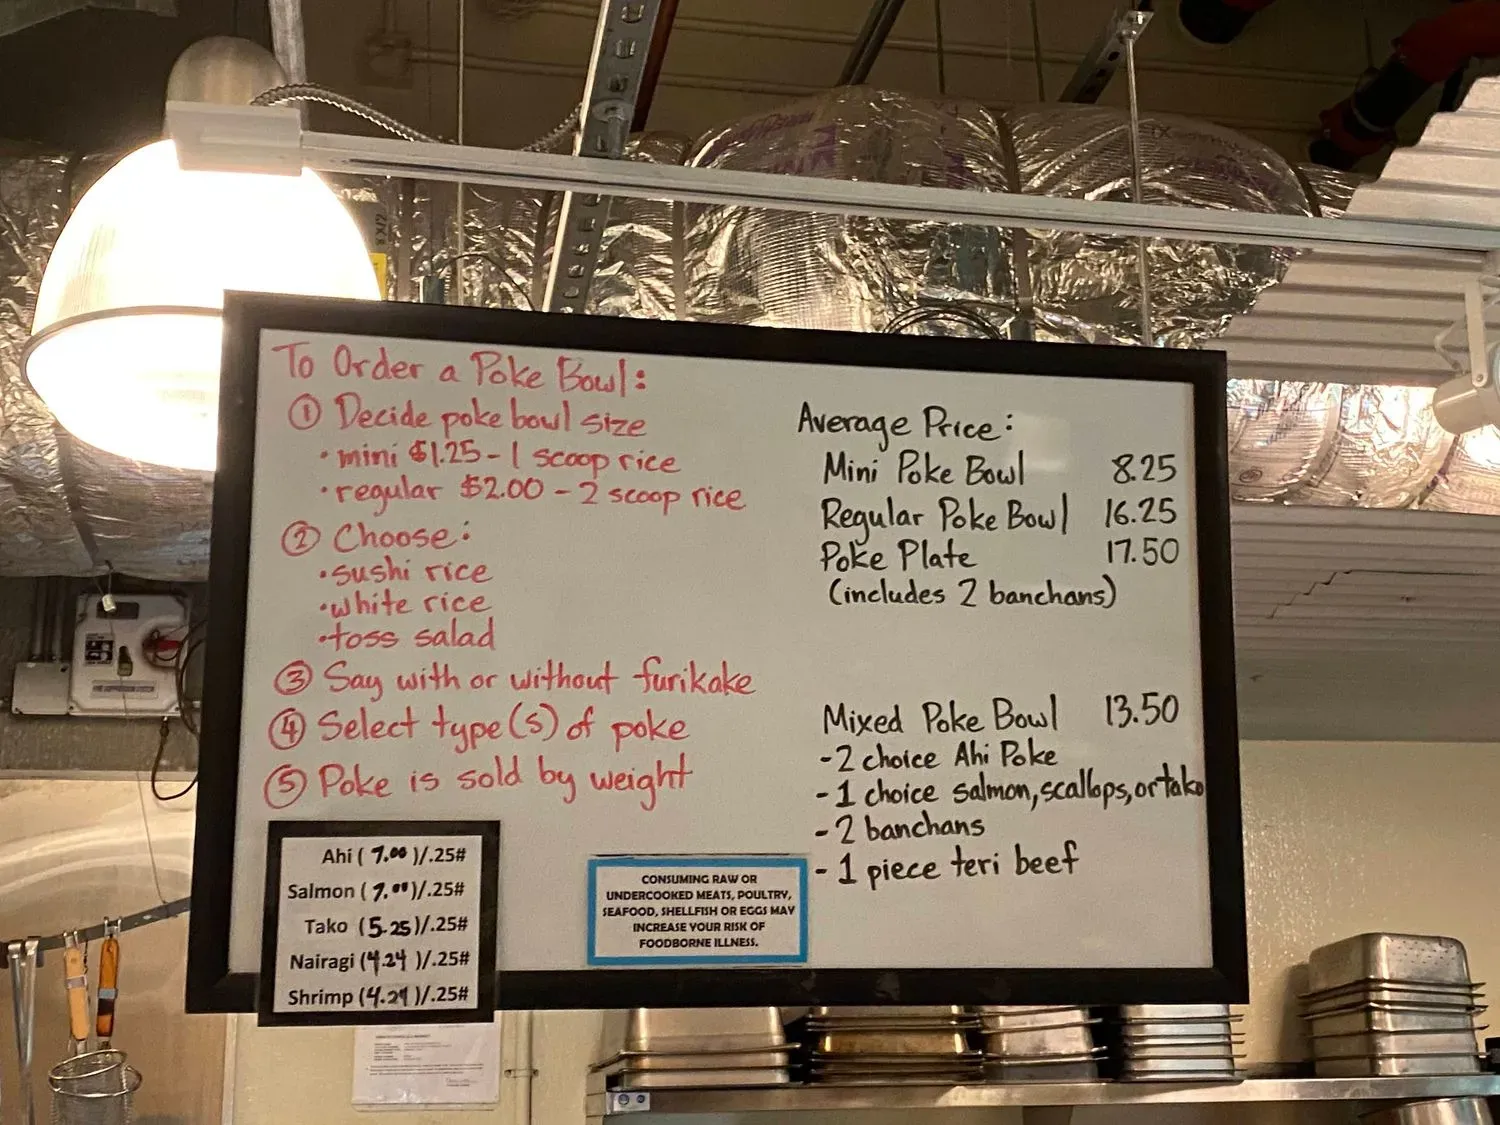 To Order a Poke Bowl:
① Decide poke bowl size
• mini $1.25 - 1 scoop rice
• regular $2.00 - 2 scoop rice
② Choose:
• sushi rice
• white rice
• toss salad
③ Say with or without furikake
④ Select type(s) of poke
⑤ Poke is sold by weight
Ahi ( 7.00 )/.25#
Salmon ( 7.00 )/.25#
Tako ( 5.25 )/.25#
Nairagi ( 4.24 )/.25#
Shrimp ( 4.29 )/.25#
CONSUMING RAW OR
UNDERCOOKED MEATS, POULTRY,
SEAFOOD, SHELLFISH OR EGGS MAY
INCREASE YOUR RISK OF
FOODBORNE ILLNESS.
Average Price:
Mini Poke Bowl 8.25
Regular Poke Bowl 16.25
Poke Plate 17.50
(includes 2 banchans)
Mixed Poke Bowl 13.50
- 2 choice Ahi Poke
- 1 choice salmon, scallops, or tako
- 2 banchans
- 1 piece teri beef